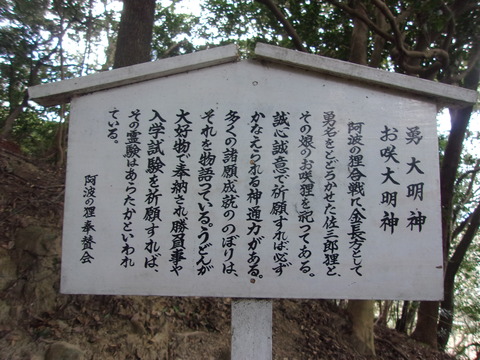 勇大明神
お咲大明神
阿波の狸合戦に金長方として
勇名をとどろかせた佐三郎狸と、
その娘のお咲狸を祀ってある。
誠心誠意で祈願すれば必ず
かなえられる神通力がある。
多くの諸願成就ののぼりは、
それを物語っている。うどんが
大好物で奉納され勝負事や
入学試験を祈願すれば、
その霊験はあらたかといわれ
ている。
阿波の狸奉賛会